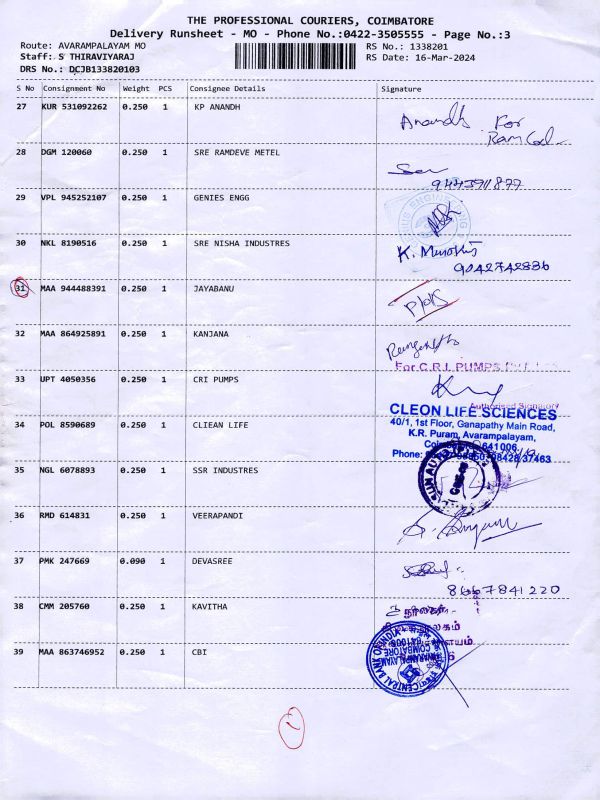 THE PROFESSIONAL COURIERS, COIMBATORE
Delivery Runsheet - MO - Phone No.:0422-3505555 - Page No.:3
Route: AVARAMPALAYAM MO
RS No.: 1338201
Staff: S THIRAVIYARAJ
RS Date: 16-Mar-2024
DRS No.: DCJB133820103
S No Consignment No Weight PCS Consignee Details Signature
27 KUR 531092262 0.250 1 KP ANANDH
Anandh For
28 DGM 120060 0.250 1 SRE RAMDEVE METEL
9443911877
29 VPL 945252107 0.250 1 GENIES ENGG
30 NKL 8190516 0.250 1 SRE NISHA INDUSTRIES
K.
9042742886
31 MAA 944488391 0.250 1 JAYABANU
32 MAA 864925891 0.250 1 KANJANA
For C.R.I. PUMPS
33 UPT 4050356 0.250 1 CRI PUMPS
Authorised Signatory
CLEON LIFE SCIENCES
34 POL 8590689 0.250 1 CLIEAN LIFE
40/1, 1st Floor, Ganapathy Main Road,
K.R. Puram, Avarampalayam,
641006
Phone: 98428 37463
35 NGL 6078893 0.250 1 SSR INDUSTRIES
36 RMD 614831 0.250 1 VEERAPANDI
37 PMK 247669 0.090 1 DEVASREE
8667841220
38 CMM 205760 0.250 1 KAVITHA
39 MAA 863746952 0.250 1 CBI
CENTRAL BANK OF INDIA
AVARAMPALAYAM
COIMBATORE
641006